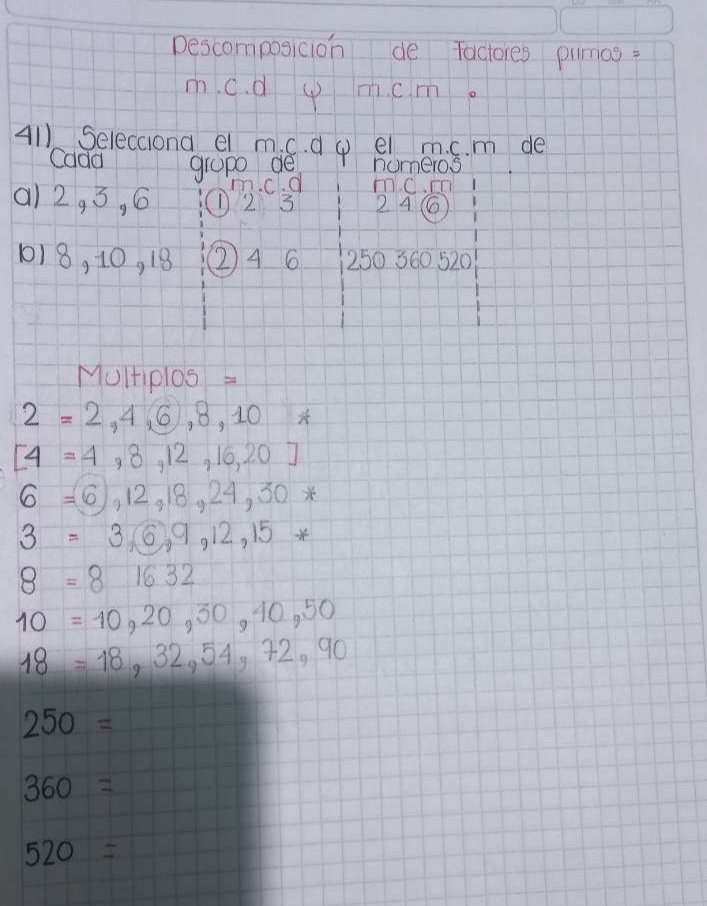 Descomposición de factores primos =
m.c.d y m.c.m.
41) Selecciona el m.c.d y el m.c.m de
Cada grupo de numeros.
m.c.d m.c.m
a) 2, 3, 6 1 2 3 2 4 6
b) 8, 10, 18 2 4 6 250 360 520
Multiplos =
2 = 2, 4, 6, 8, 10 *
[4 = 4, 8, 12, 16, 20 ]
6 = 6, 12, 18, 24, 30 *
3 = 3, 6, 9, 12, 15 *
8 = 8 16 32
10 = 10, 20, 30, 40, 50
18 = 18, 32, 54, 72, 90
250 =
360 =
520 =